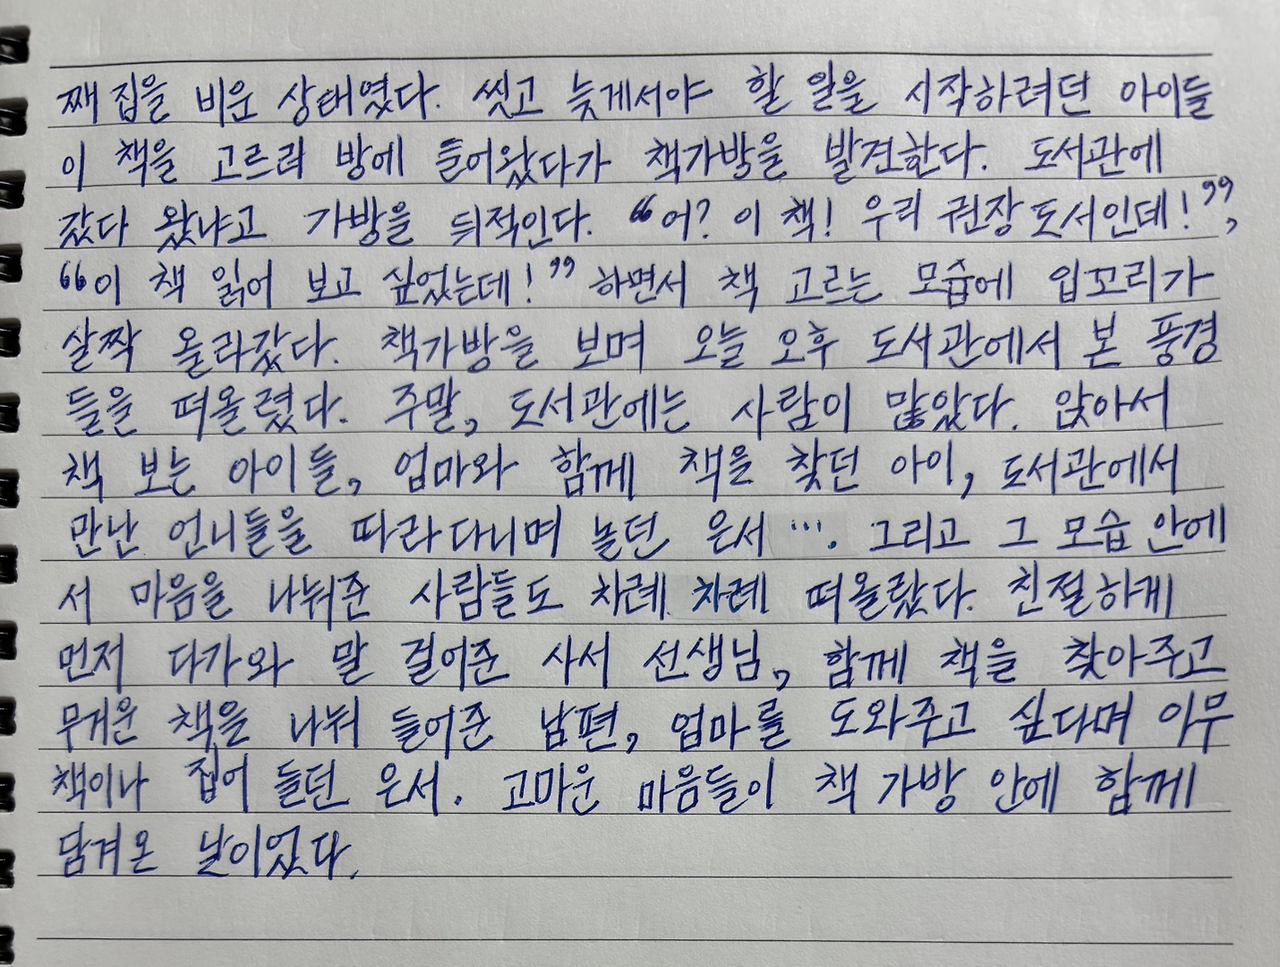 째 집을 비운 상태였다. 씻고 늦게서야 할 일을 시작하려던 아이들
이 책을 고르러 방에 들어왔다가 책가방을 발견한다. 도서관에
갔다 왔냐고 가방을 뒤적인다. “어? 이 책! 우리 권장도서인데!”,
“이 책 읽어 보고 싶었는데!” 하면서 책 고르는 모습에 입꼬리가
살짝 올라갔다. 책가방을 보며 오늘 오후 도서관에서 본 풍경
들을 떠올렸다. 주말, 도서관에는 사람이 많았다. 앉아서
책 보는 아이들, 엄마와 함께 책을 찾던 아이, 도서관에서
만난 언니들을 따라다니며 놀던 은서 …. 그리고 그 모습 안에
서 마음을 나눠준 사람들도 차례 차례 떠올랐다. 친절하게
먼저 다가와 말 걸어준 사서 선생님, 함께 책을 찾아주고
무거운 책을 나눠 들어준 남편, 엄마를 도와주고 싶다며 아무
책이나 집어 들던 은서. 고마운 마음들이 책 가방 안에 함께
담겨온 날이었다.